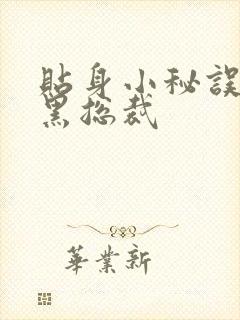 貼身小秘誤
黑總裁
華業新